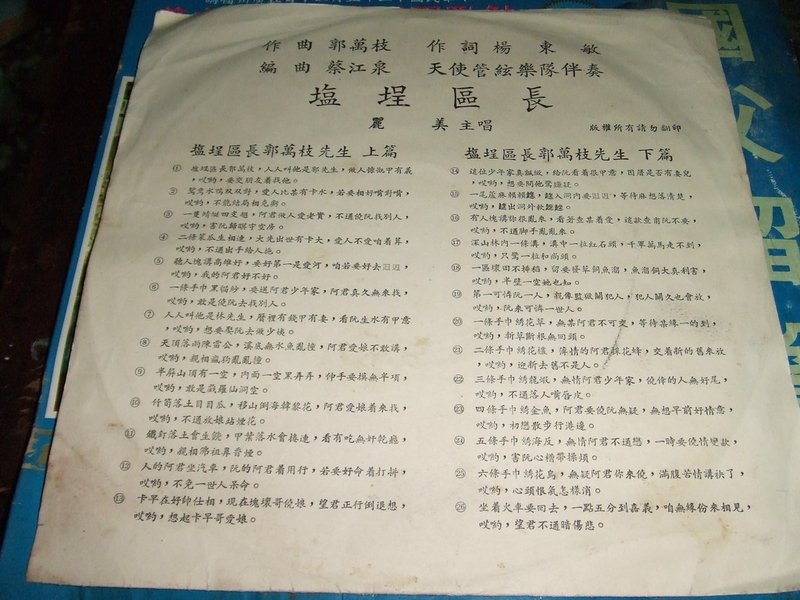 作曲 郭萬枝　作詞 楊東敏
編曲 蔡江泉　天使管絃樂隊伴奏
塩埕區長
麗美 主唱
版權所有請勿翻印
塩埕區長郭萬枝先生 上篇
① 塩埕區長郭萬枝，人人叫他是郭先生，做人慷慨甲有義，
哎喲，要交朋友着找他。
② 鴛鴦水鴨双双對，愛人比某有卡水，若要相好嘴對嘴，
哎喲，不危結局相克衝。
③ 一隻蜻蜓四支翅，阿君做人愛老實，不通僥阮找別人，
哎喲，害阮歸暝守空房。
④ 二條菜瓜生相連，大先出世有卡大，愛人不愛咱着算，
哎喲，不通出手給人拖。
⑤ 聽人塊講高雄好，要好第一是愛河，咱若要好去𨑨迌，
哎喲，我的阿君好不好。
⑥ 一條手巾黑惱紗，要送阿君少年家，阿君真久無來找，
哎喲，敢是僥阮去找別人。
⑦ 人人叫他是林先生，厝裡有錢甲有妻，看阮生水有甲意，
哎喲，想要娶阮去做少姨。
⑧ 天頂落雨陳雷公，溪底無水魚亂撞，阿君愛娘不敢講，
哎喲，親相瘋狗亂亂撞。
⑨ 半屏山頂有一空，內面一空黑弄弄，伸手要摸無半項，
哎喲，敢是戲羅仙洞空。
⑩ 竹筍落土目目瓜，移山倒海樊黎花，阿君愛娘着來找，
哎喲，不通放娘站煙花。
⑪ 鐵釘落土會生銑，甲葉落水會捲連，看有吃無好乾癮，
哎喲，親相佛祖鼻香煙。
⑫ 人的阿君坐汽車，阮的阿君着用行，若要好命着打拚，
哎喲，不免一世人呆命。
⑬ 卡早在好師仕相，現在塊壞哥僥娘，望君正行倒退想，
哎喲，想起卡早哥愛娘。
塩埕區長郭萬枝先生 下篇
⑭ 這位少年家真飄撇，給阮看着很甲意，因厝是否有妻兒，
哎喲，想要問他驚嫌疑。
⑮ 一尾蘆麻賴賴，入洞內要𨑨迌，等待麻想落清楚，
哎喲，出洞外軟。
⑯ 有人塊講你很亂來，看若查某着愛，這款查甫阮不要，
哎喲，不通脚手亂亂來。
⑰ 深山林內一條溝，溝中一粒紅石頭，千軍萬馬走不到，
哎喲，只驚一粒和尚頭。
⑱ 一區壞田不捧稻，留要發草飼魚溜，魚溜飼大真利害，
哎喲，半壁一空她也知。
⑲ 第一可憐阮一人，親像監獄關犯人，犯人關久也會放，
哎喲，阮來可憐一世人。
⑳ 一條手巾綉花草，無某阿君不可交，等待某緣一的到，
哎喲，新草斷根無回頭。
㉑ 二條手巾綉花欉，薄情的阿君採花蜂，交着新的舊來放，
哎喲，迎新去舊不是人。
㉒ 三條手巾綉龍溆，無情阿君少年家，僥倖的人無好尾，
哎喲，不通落人嘴唇皮。
㉓ 四條手巾綉金魚，阿君要僥阮無疑，無想早前好情意，
哎喲，初戀散步行港邊。
㉔ 五條手巾綉海反，無情阿君不通戀，一時要僥情變款，
哎喲，害阮心糟帶操煩。
㉕ 六條手巾綉花鳥，無疑阿君你來僥，滿腹苦情講袂了，
哎喲，心頭恨氣怎樣消。
㉖ 坐着火車要回去，一點五分到嘉義，咱無緣份來相見，
哎喲，望君不通暗傷悲。
國父